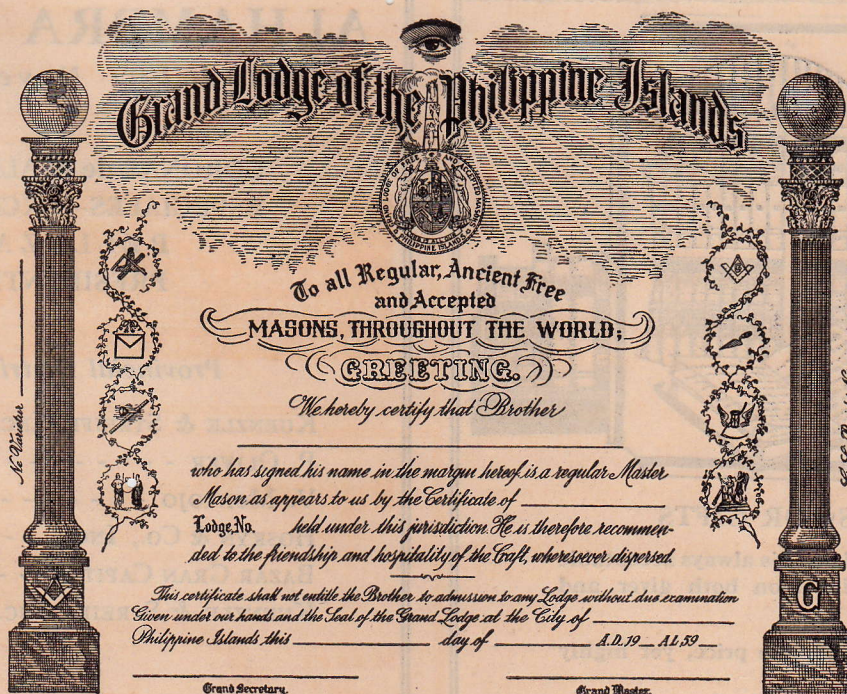 Grand Lodge of the Philippine Islands
GRAND LODGE OF FREE AND ACCEPTED MASONS
PHILIPPINE ISLANDS
To all Regular, Ancient Free
and Accepted
MASONS, THROUGHOUT THE WORLD;
GREETING.
We hereby certify that Brother
who has signed his name in the margin hereof, is a regular Master
Mason as appears to us by the Certificate of
Lodge, No. held under this jurisdiction. He is therefore recommen-
ded to the friendship and hospitality of the Craft, wheresoever dispersed.
This certificate shall not entitle the Brother to admission to any Lodge without due examination
Given under our hands and the Seal of the Grand Lodge at the City of
Philippine Islands this day of A.D. 19 A.L. 59
Grand Secretary. Grand Master.
Ne Varietur
G
G